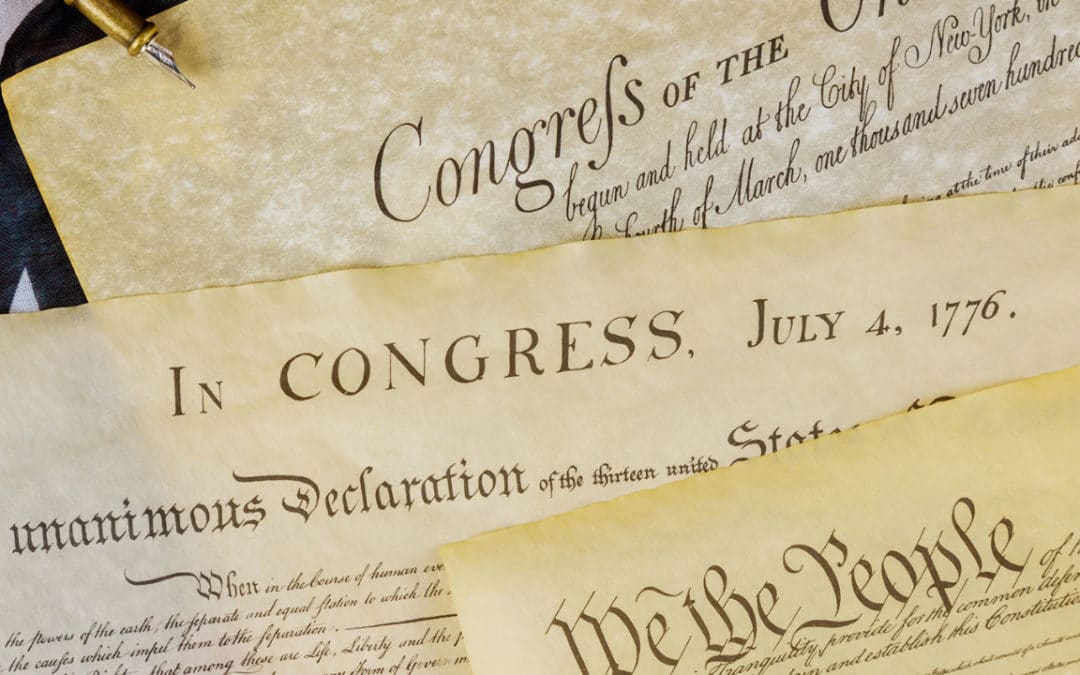 Congreſs OF THE
begun and held at the City of New-York, on
Fourth of March, one thousand seven hundred
at the time of their
In CONGRESS, July 4, 1776.
unanimous Declaration of the thirteen united States
When in the Course of human eve
the powers of the earth, the ſeparate and equal ſtation to which the
the cauſes which impel them to the ſeparation.
that among theſe are Life, Liberty and the p
any Form of Governm
We the People of
Tranquility, provide for the common defen
and establish this Constitution